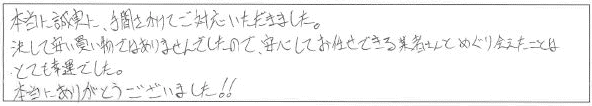 本当に誠実に、手間をかけてご対応いただきました。
決して安い買い物ではありませんでしたので、安心してお任せできる業者さんとめぐり会えたことは
とても幸運でした。
本当にありがとうございました!!